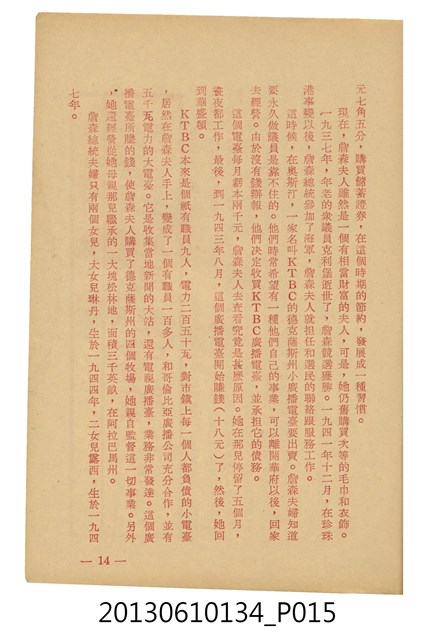 元七角五分，購買儲蓄證券，在這個時期的節約，發展成一種習慣。
現在，詹森夫人雖然是一個有相當財富的夫人，可是，她仍舊購買次等的毛巾和衣飾。
一九三七年，年老的衆議員克利堡逝世了，詹森競選獲勝。一九四一年十二月，在珍珠
港事變以後，詹森總統參加了海軍，詹森夫人就担任和選民的聯絡跟服務工作。
這時候，在奧斯汀，一家名叫KTBC的德克薩斯州小廣播電臺要出賣。詹森夫婦知道
要永久做議員是靠不住的。他們時常希望有一種他們自己的事業，可以離開華府以後，回家
去經營。由於沒有錢辦報，他們決定收買KTBC廣播電臺，並承担它的債務。
這個電臺每月虧本兩千元，詹森夫人去查看究竟是甚麼原因。她在那兒停留了五個月，
晝夜都工作，最後，到一九四三年八月，這個廣播電臺開始賺錢（十八元）了，然後，她回
到華盛頓。
KTBC本來是個祇有職員九人，電力二百五十瓦，對市鎮上每一個人都負債的小電臺
，居然在詹森夫人手上，變成了一個有職員一百多人，和哥倫比亞廣播公司充分合作，並有
五千瓦電力的大電臺。它是收集當地新聞的大站，還有電視廣播臺，業務非常發達。這個廣
播電臺所賺的錢，使詹森夫人購買了德克薩斯州的四個牧場，她親自監督這一切事業。另外
，她還經營從她母親那兒繼承的一大塊松林地，面積三千英畝，在阿拉巴馬州。
詹森總統夫婦只有兩個女兒，大女兒琳丹，生於一九四四年，二女兒露西，生於一九四
七年。
— 14 —
20130610134_P015